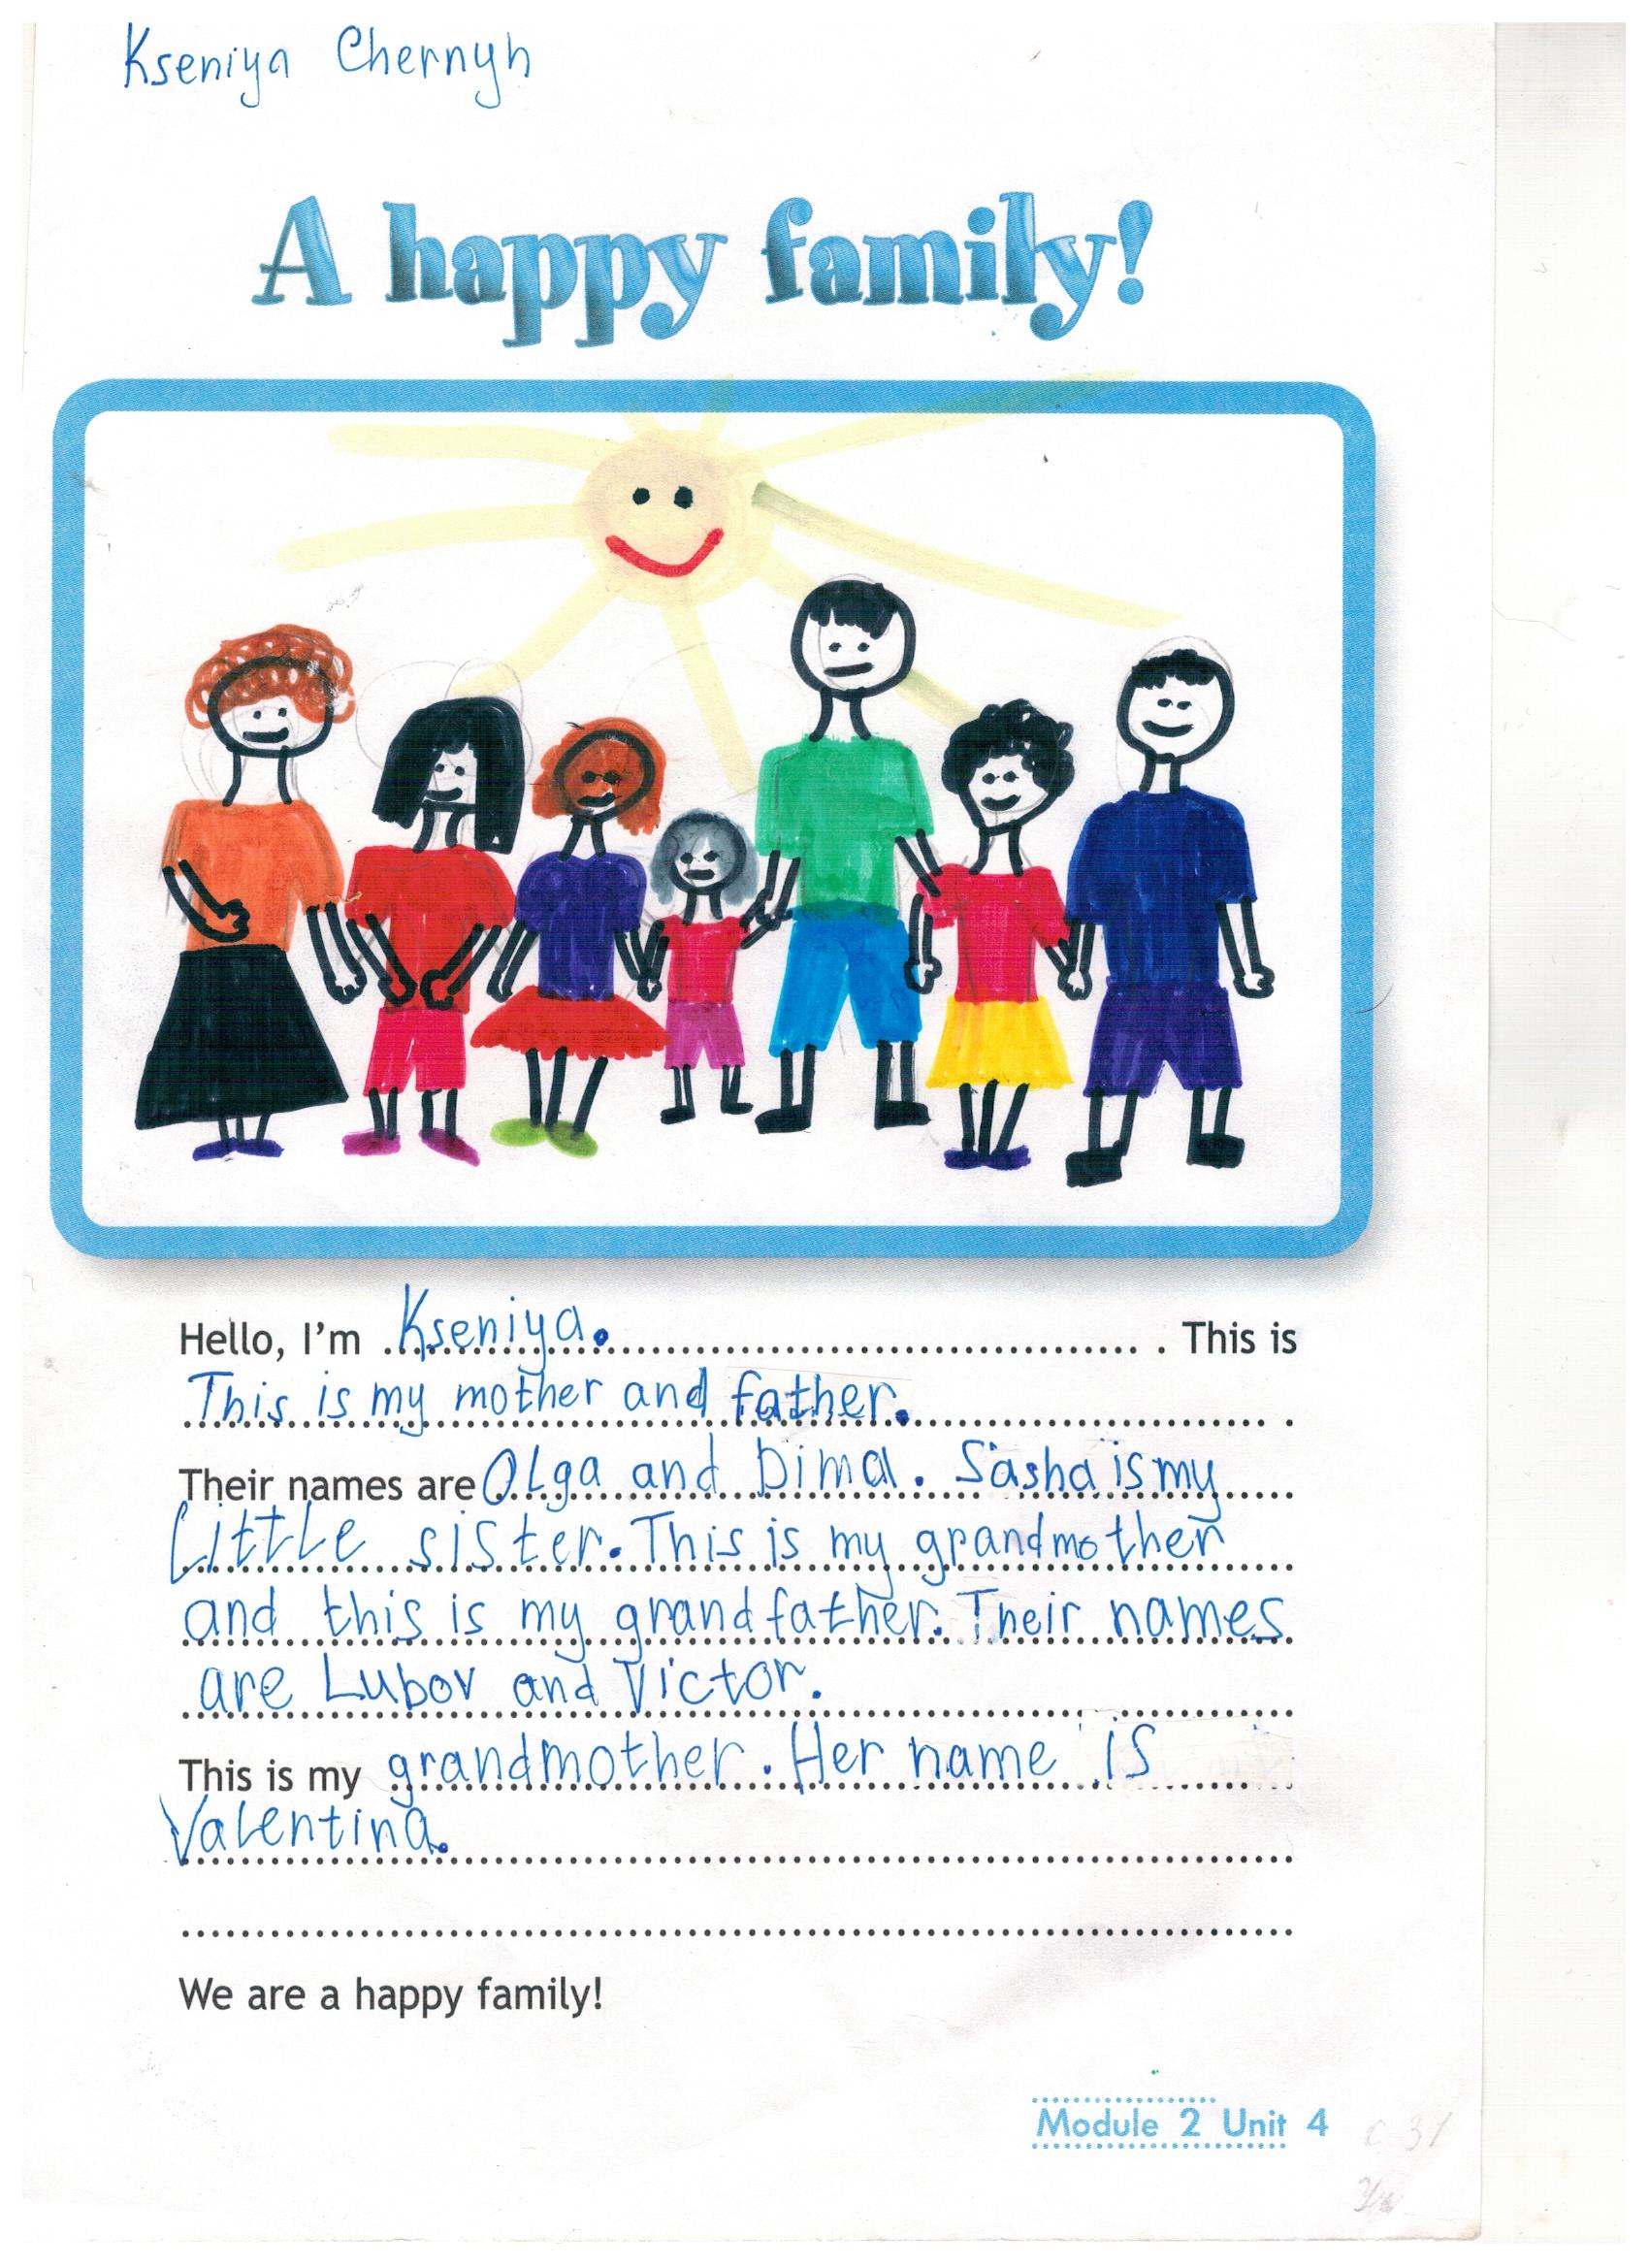 Kseniya Chernyh
A happy family!
Hello, I'm Kseniya. . This is
This is my mother and father. .
Their names are Olga and Dima. Sasha is my
Little sister. This is my grandmother
and this is my grandfather. Their names
are Lubov and Victor.
This is my grandmother. Her name is
Valentina.
We are a happy family!
Module 2 Unit 4
c 31